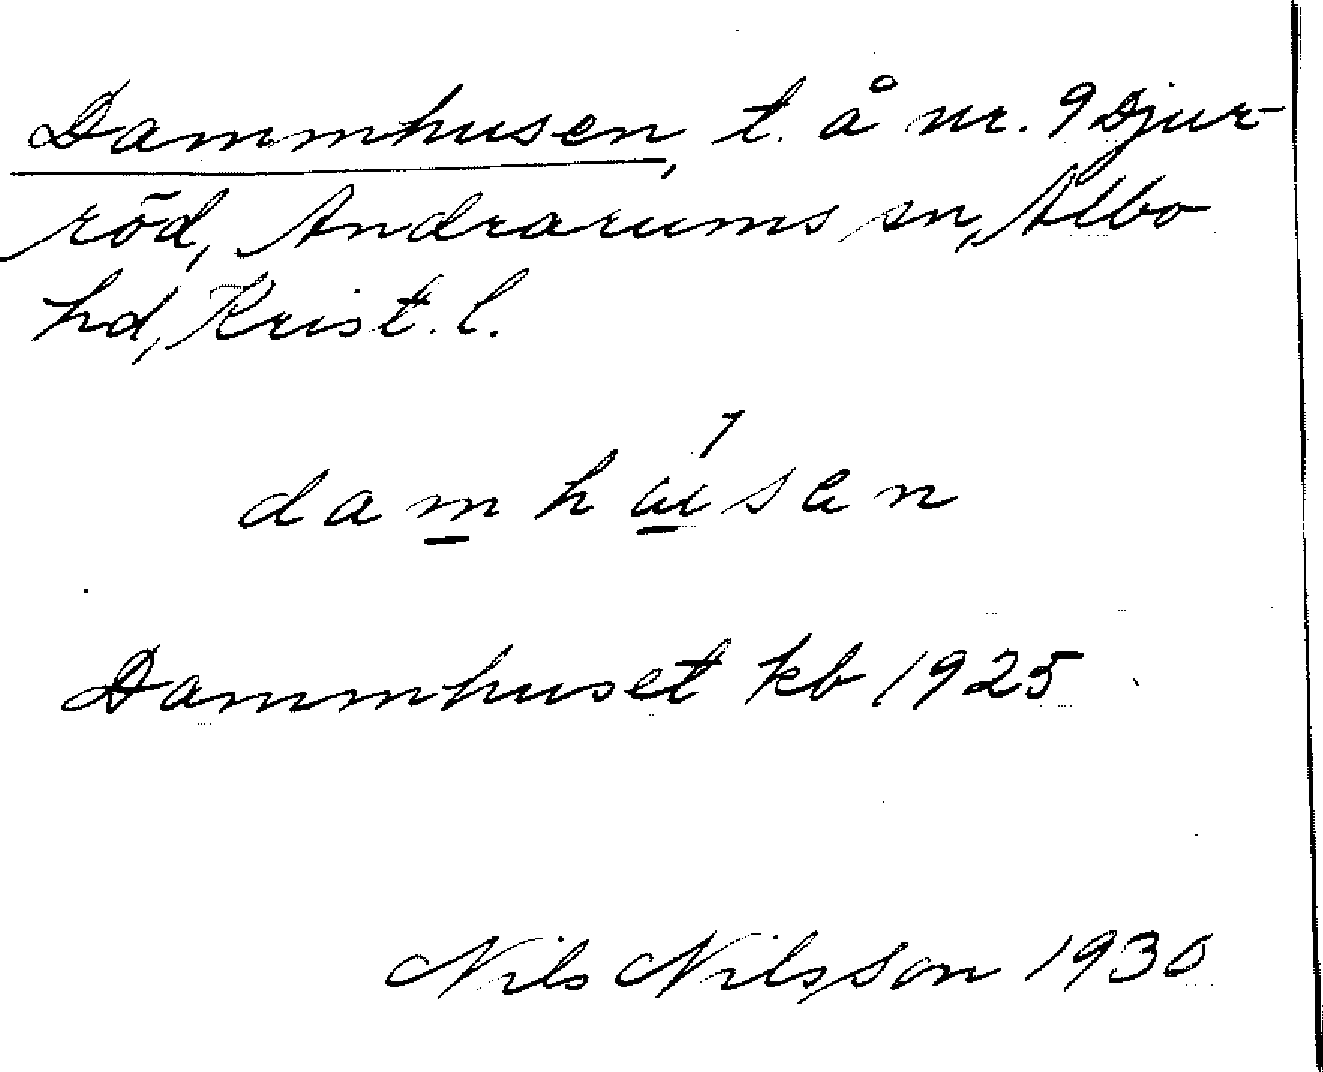 Dammhusen, t. å nr. 9 Djur-
röd, Andrarums sn, Albo
hd, Krist. l.
Dammhuset kb 1925
Nils Nilsson 1930